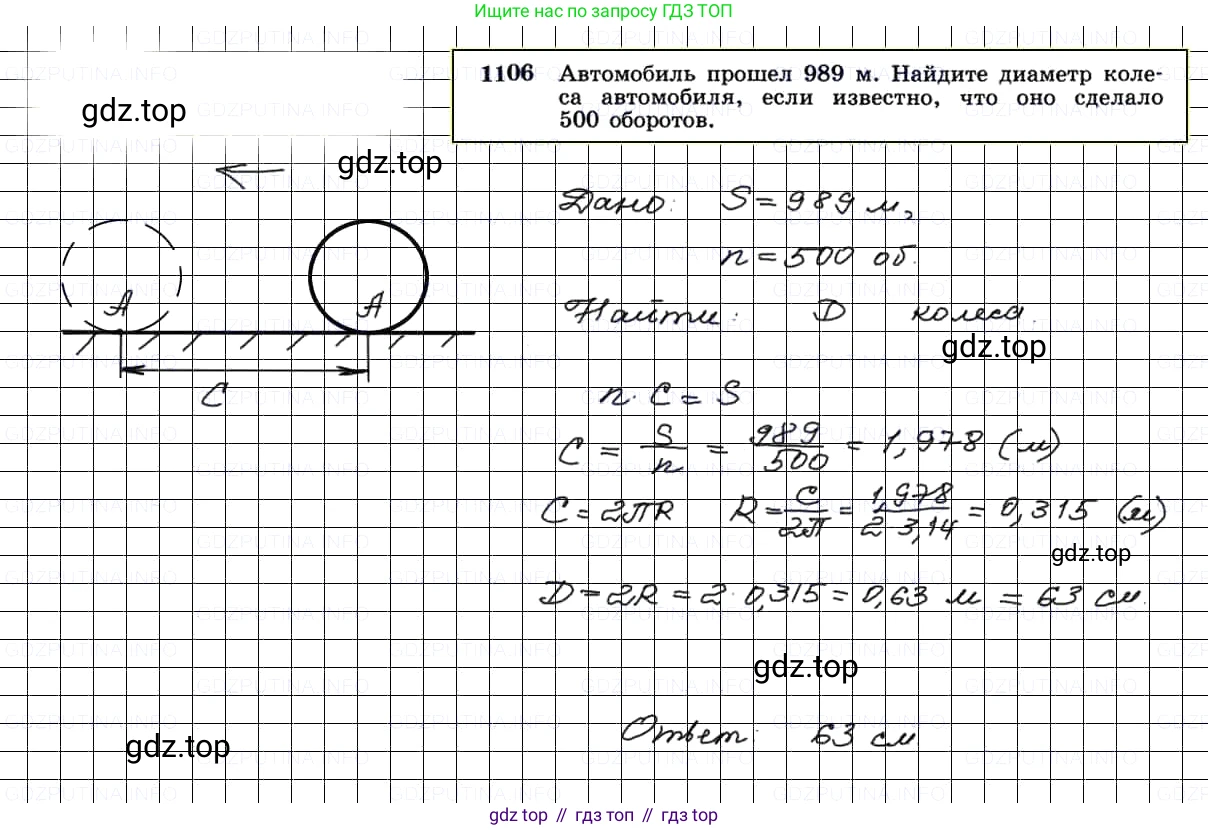 Ищите нас по запросу ГДЗ ТОП
1106 Автомобиль прошел 989 м. Найдите диаметр коле-
са автомобиля, если известно, что оно сделало
500 оборотов.
gdz.top
gdz.top
Дано: S = 989 м,
n = 500 об.
Найти: D колеса.
gdz.top
A A
C
n · C = S
C = S/n = 989/500 = 1,978 (м)
C = 2πR R = C/2π = 1,978/2·3,14 = 0,315 (м)
gdz.top
D = 2R = 2 · 0,315 = 0,63 м = 63 см.
gdz.top
Ответ: 63 см.
gdz.top
gdz top // гдз топ // гдз top
GDZPUTINA.INFO